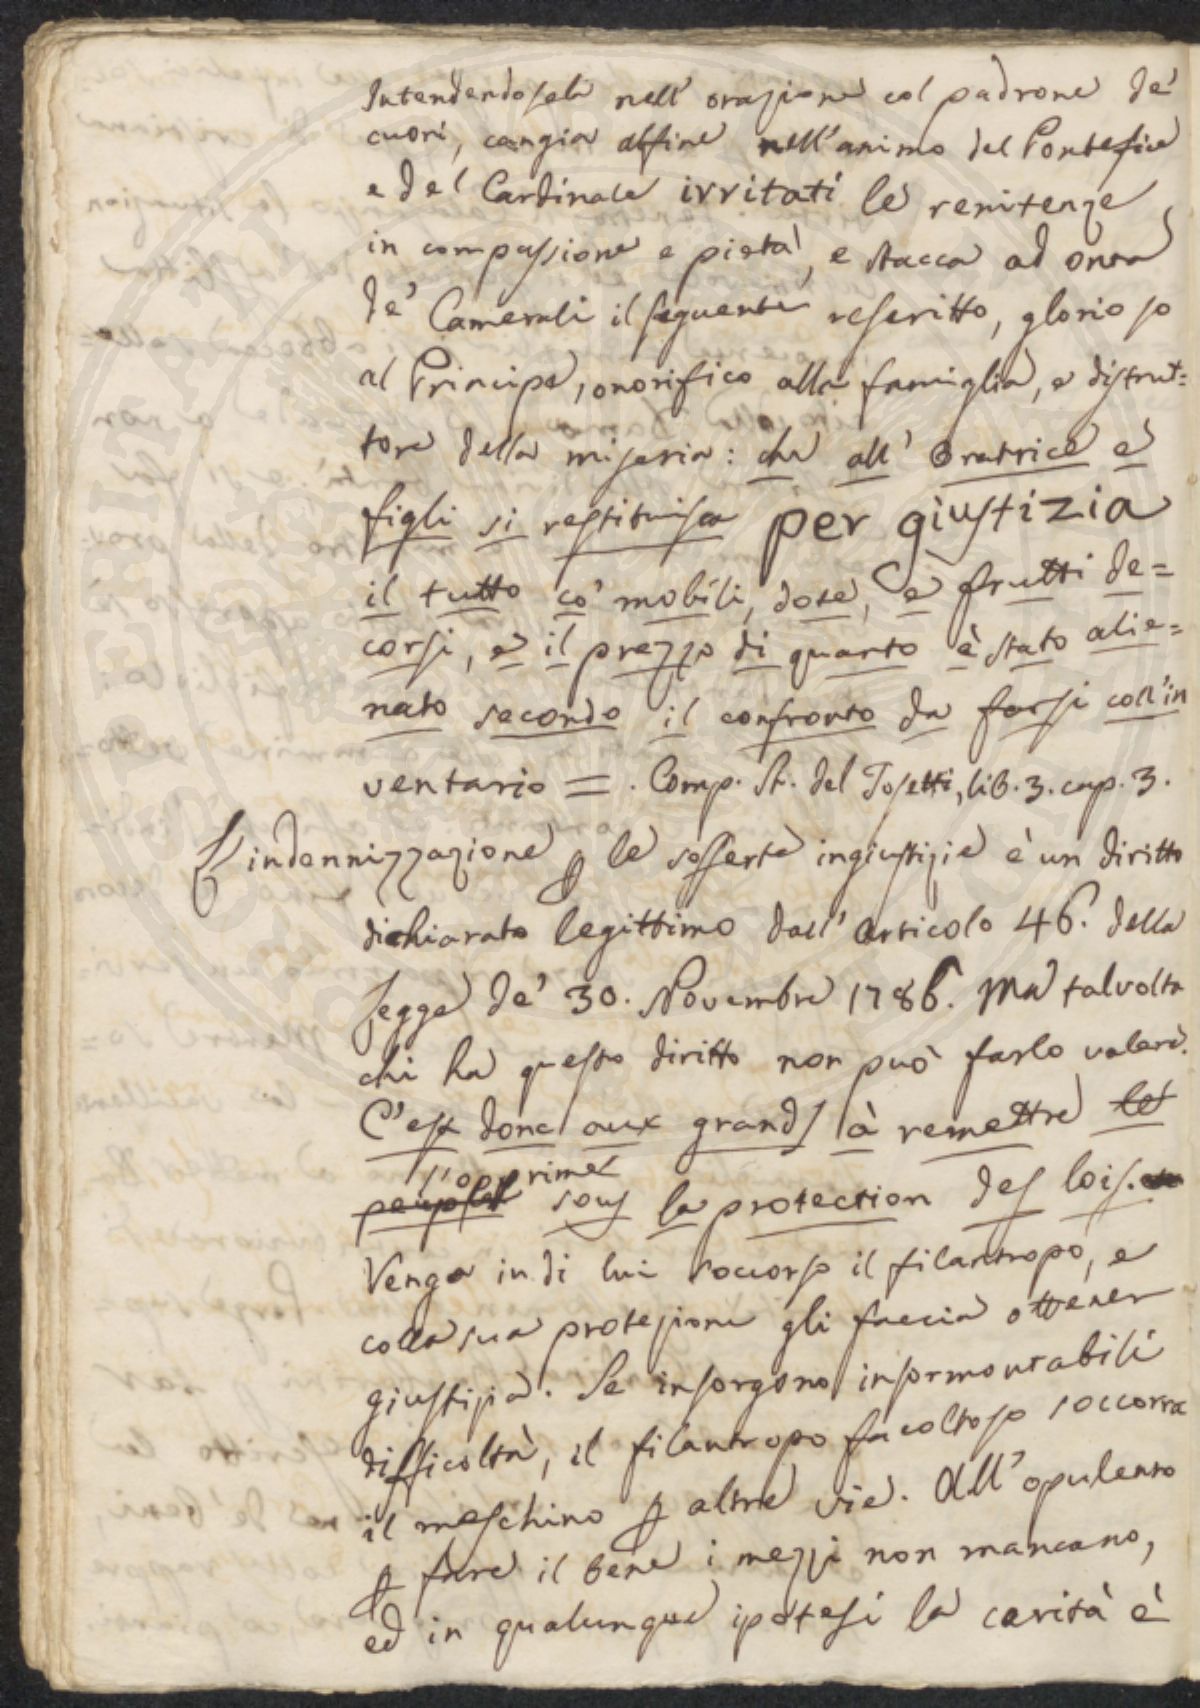 Intendendosela nell' orazione col padrone de'
cuori, cangia affine nell'animo del Pontefice
e del Cardinale irritati le renitenze
in compassione e pietà, e stacca ad onta
de' Camerali il seguente rescritto, glorioso
al Principe, onorifico alla famiglia, e distrut=
tore della miseria: che all' Oratrice e
figli si restituisca per giustizia
il tutto co' mobili, dote, e frutti de=
corsi, e il prezzo di quanto è stato alie=
nato secondo il confronto da farsi coll'in
ventario =. Comp. St. del Tosetti, lib. 3. cap. 3.
L'indennizzazione ꝑ le sofferte ingiustizie è un diritto
dichiarato legittimo dall' articolo 46. della
Legge de' 30. Novembre 1786. Ma talvolta
chi ha questo diritto non può farlo valere.
C'est donc aux grands à remettre le
peuple l'opprimé sous la protection des lois.
Venga in di lui soccorso il filantropo, e
colla sua protezione gli faccia ottener
giustizia. Se insorgono insormontabili
difficoltà, il filantropo facoltoso soccorra
il meschino ꝑ altre vie. All' opulento
ꝑ fare il bene i mezzi non mancano,
ed in qualunque ipotesi la carità è